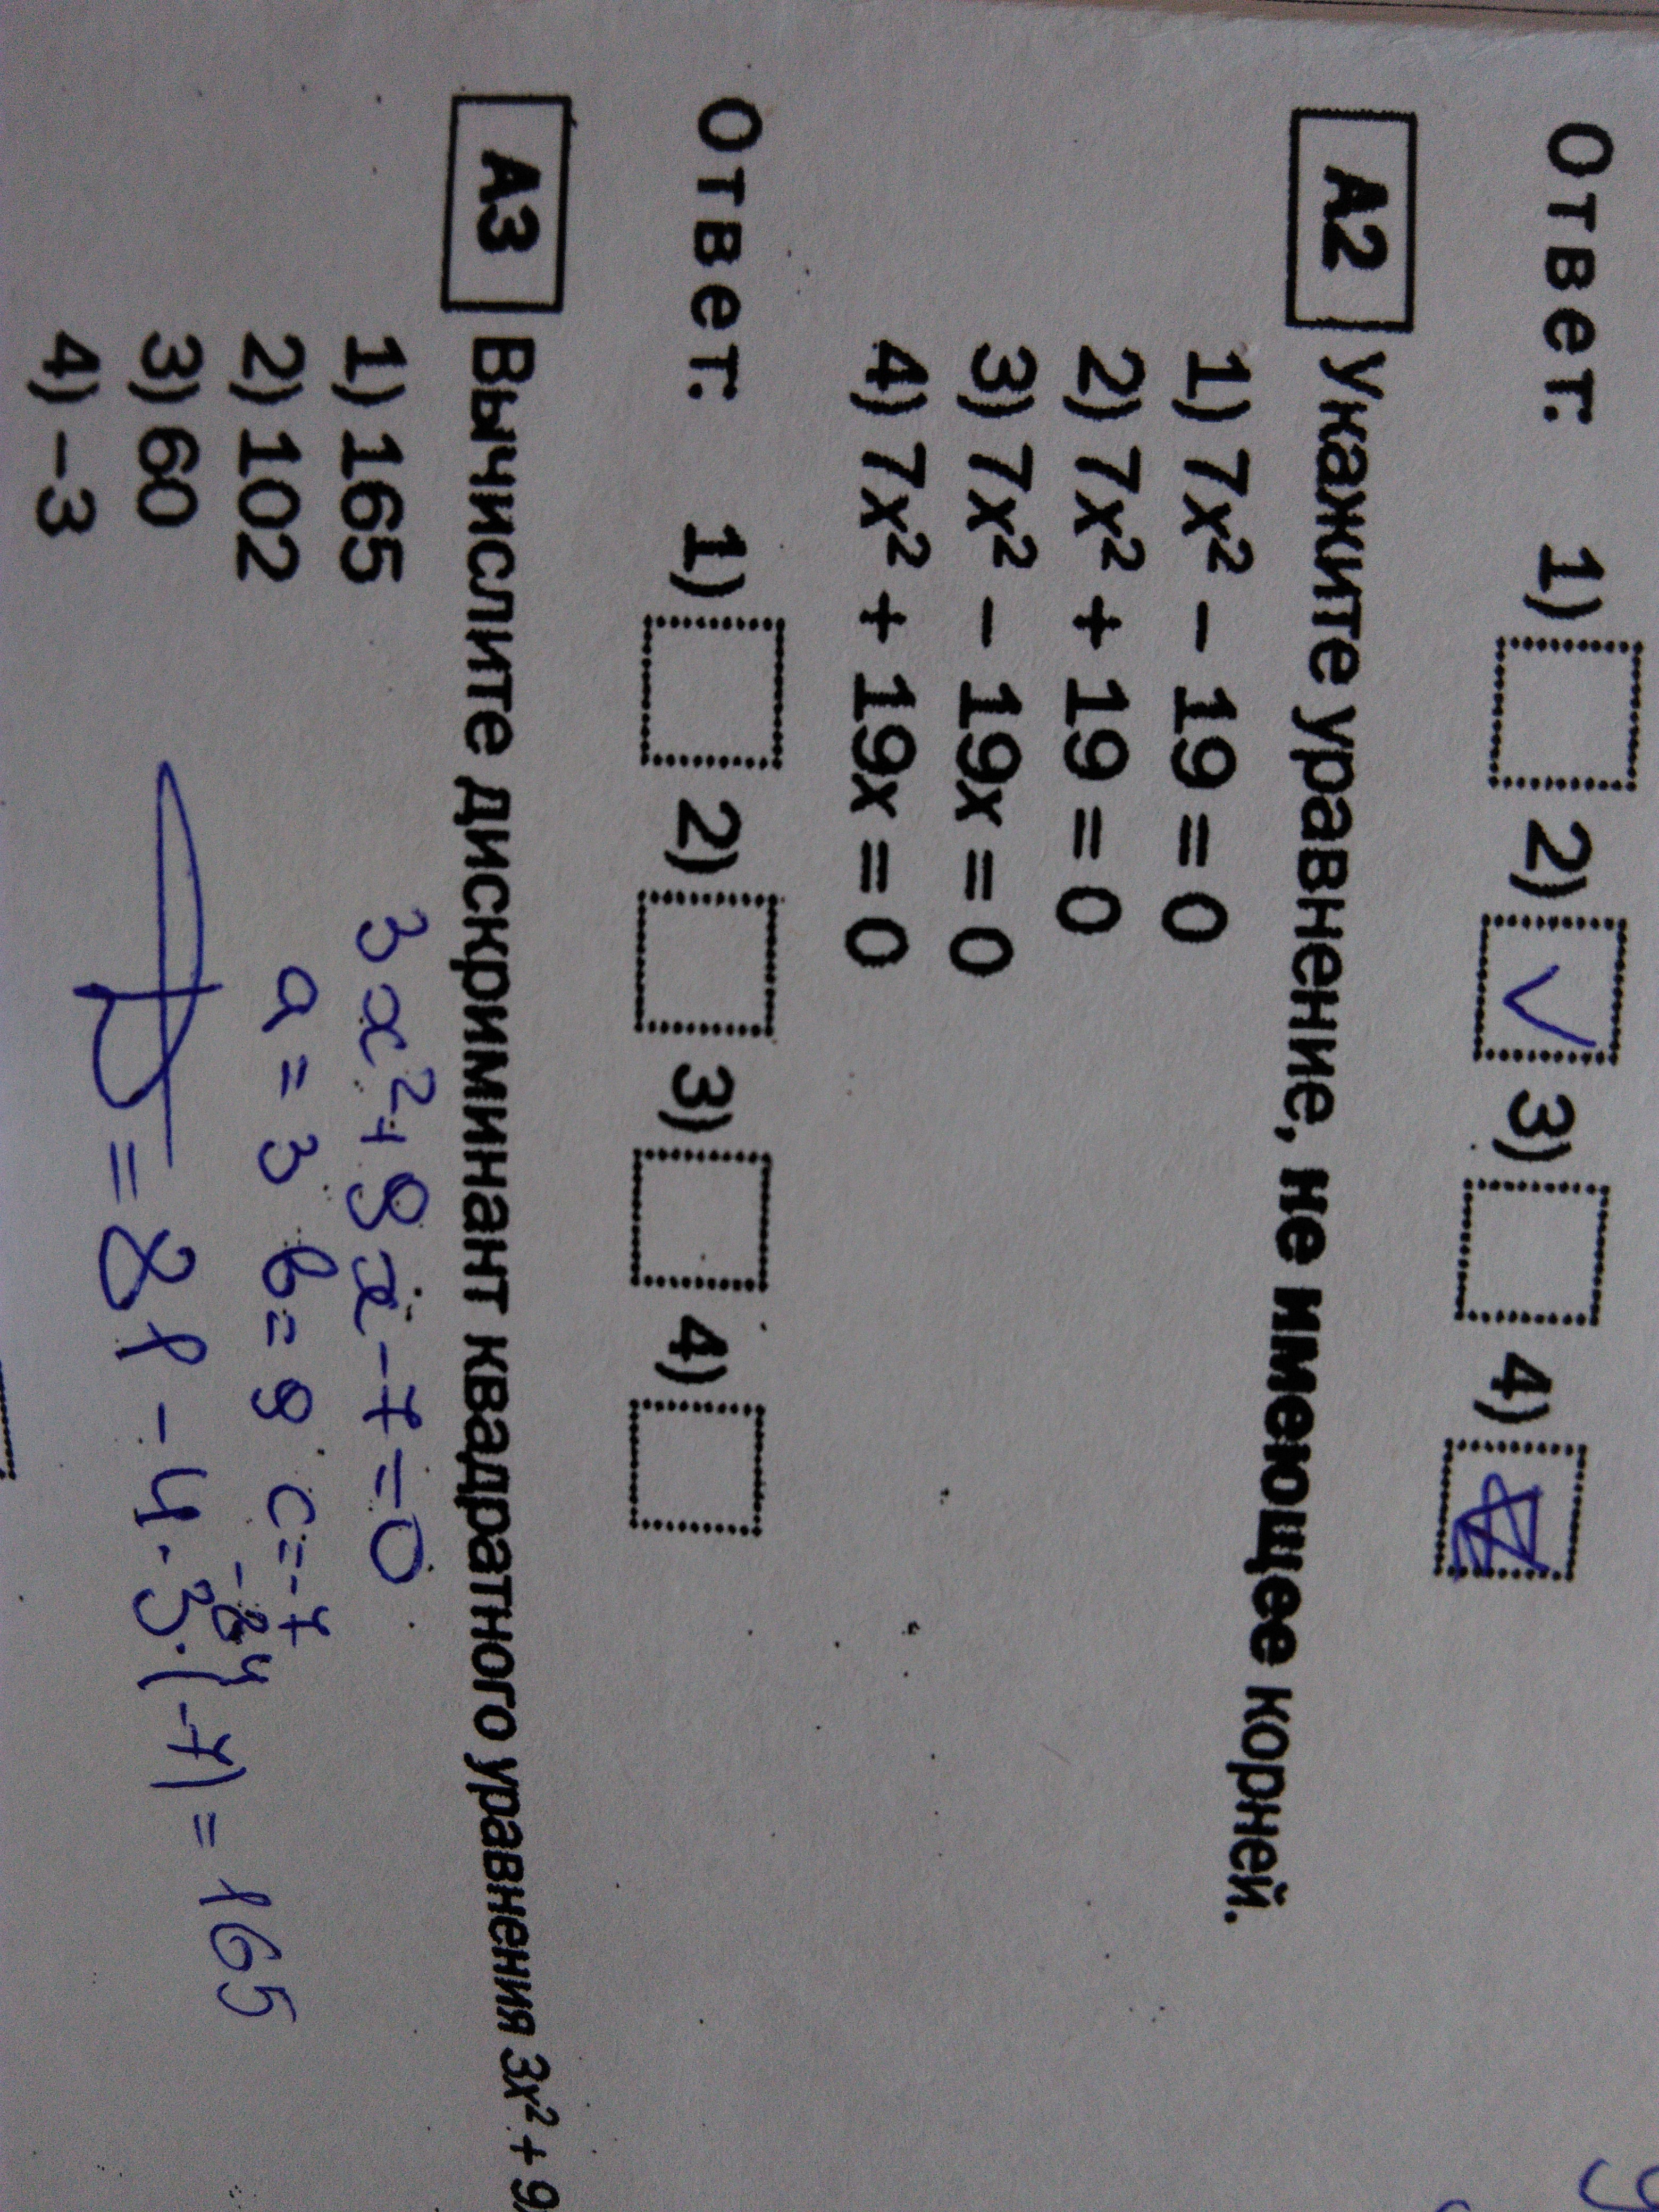 Ответ: 1) 2) √ 3) 4)
А2 Укажите уравнение, не имеющее корней.
1) 7x² − 19 = 0
2) 7x² + 19 = 0
3) 7x² − 19x = 0
4) 7x² + 19x = 0
Ответ: 1) 2) 3) 4)
А3 Вычислите дискриминант квадратного уравнения 3x² + 9
1) 165
2) 102
3) 60
4) −3
3x²+9x−7=0
a=3 b=9 c=−7
−84
D=81−4·3·(−7)=165